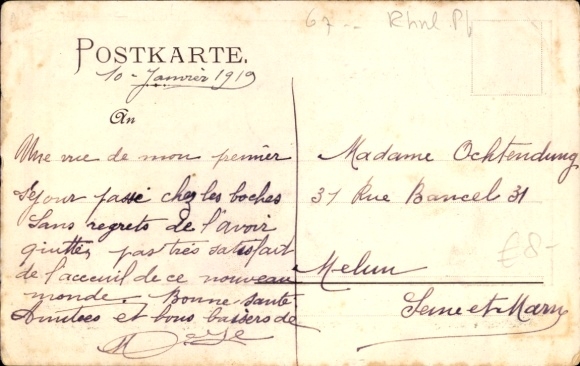 67 -- Rhnl Pf
POSTKARTE.
10 - Janvier 1919
An
Une vue de mon premier
séjour passé chez les boches
Sans regrets de l'avoir
quitter, pas très satisfait
de l'acceuil de ce nouveau
monde. Bonne santé
Amitiées et bons baisers de
Madame Ochtendung
31 Rue Bancel 31
£8-
Melun
Seine et Marne